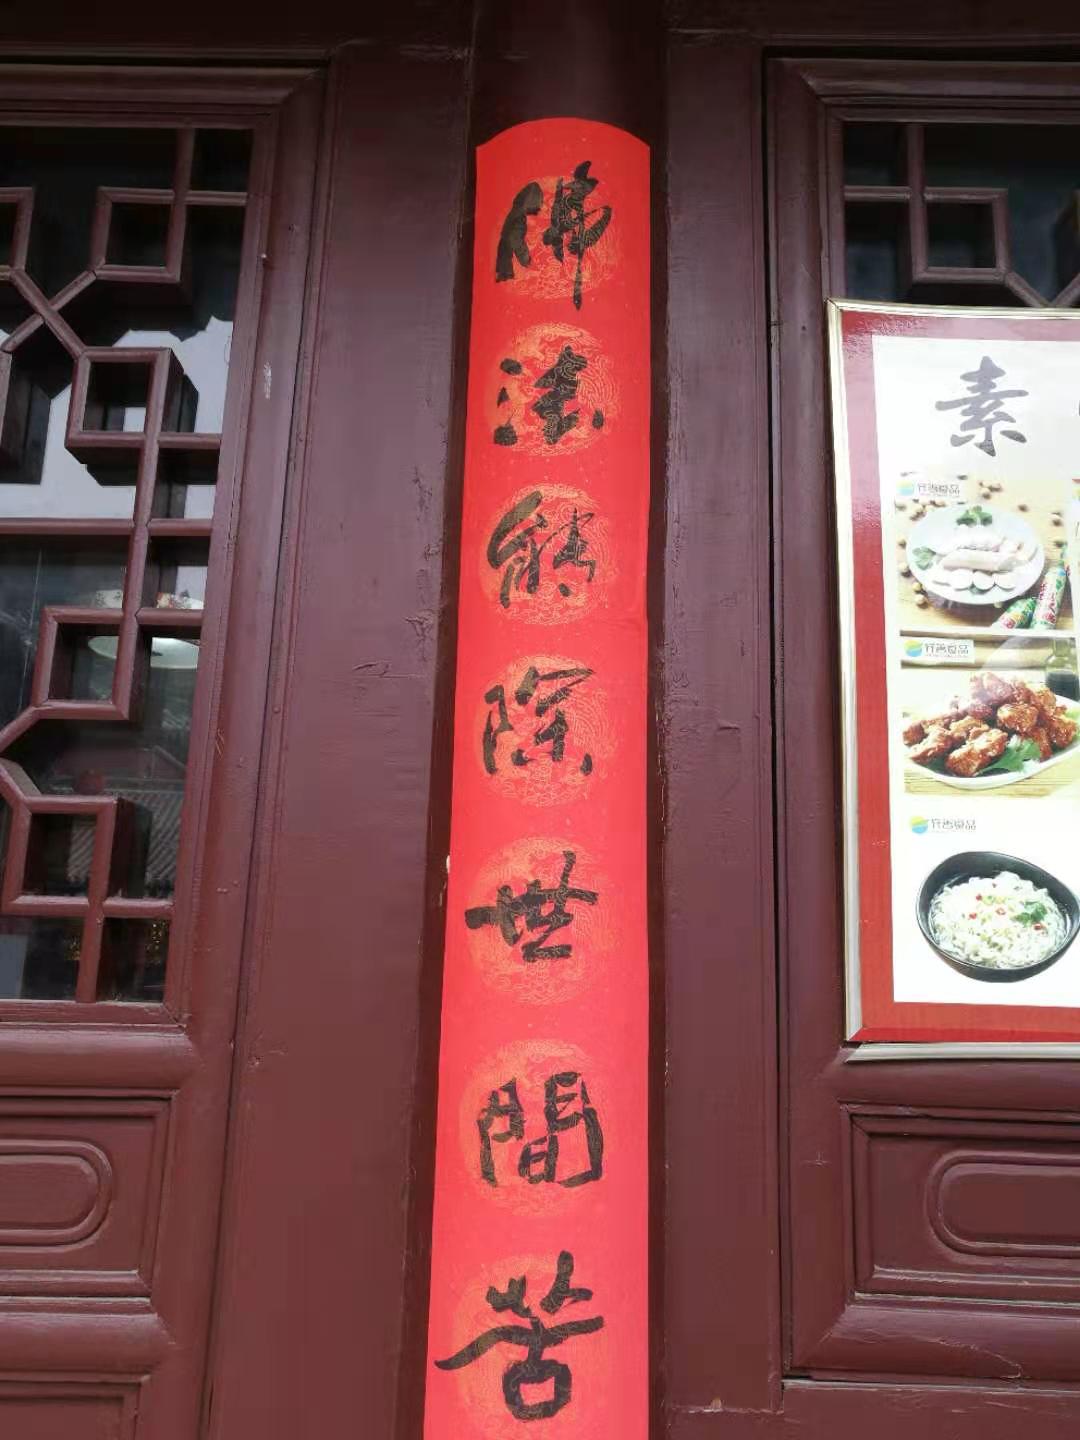 佛法能除世間苦
素
齐善食品
齐善食品
齐善食品